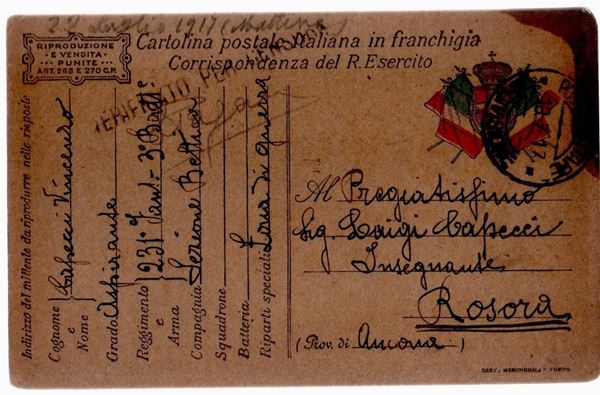 22 Luglio 1917 (Mattina)
RIPRODUZIONE
E VENDITA
PUNITE
ART. 268 E 270 C.P.
Cartolina postale italiana in franchigia
Corrispondenza del R. Esercito
VERIFICATO PER CENSURA
Indirizzo del mittente da riprodurre nelle risposte
Cognome e Nome Capecci Vincenzo
Grado Aspirante
Reggimento 231° Fant. - 3° Batt.
Arma
Compagnia Sezione Bellica
Squadrone
Batteria
Riparti speciali Zona di Guerra
Al Pregiatissimo
Sig. Luigi Capecci
Insegnante
Rosora
(Prov. di Ancona)
CART. MERIDIONALI -